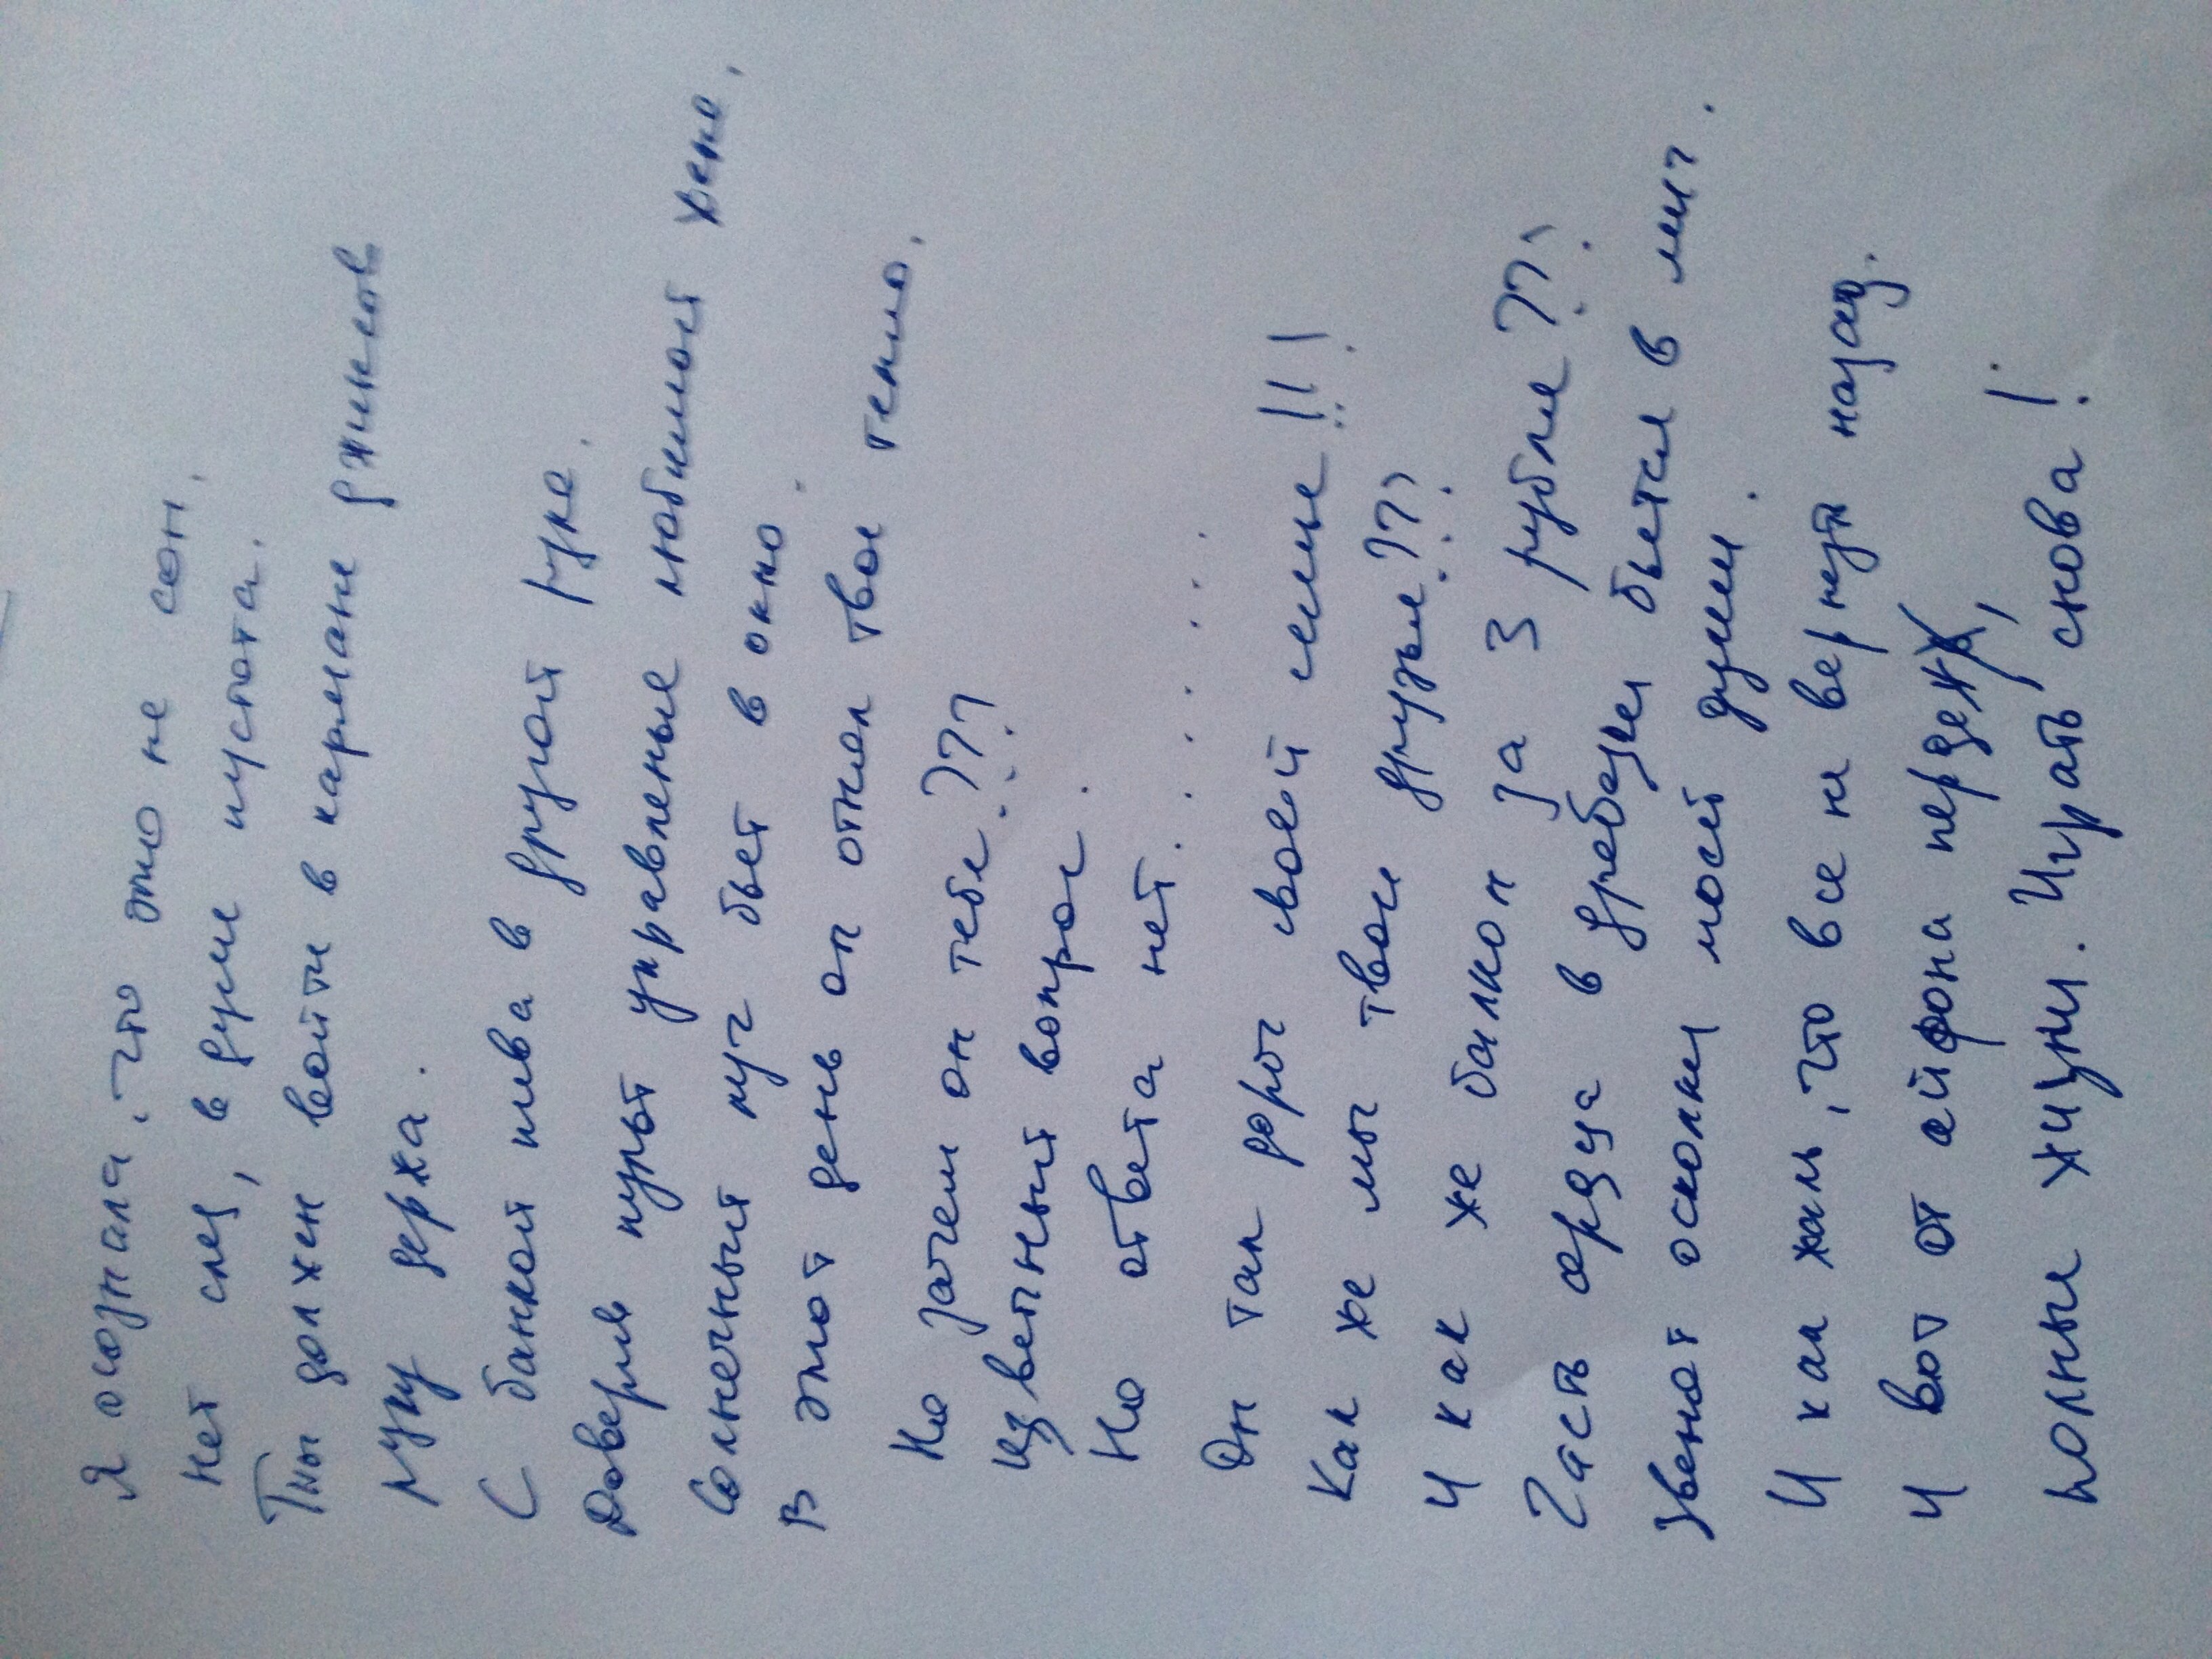 Я осознала, что это не сон.
Нет слез, в душе пустота.
Ты должен войти в кармане джинсов
руку держа.
С банкой пива в другой руке.
Доверив пульт управленье любимой жене.
Солнечный луч бьет в окно.
В этот день он отнял твое тепло.
Но зачем он тебе???
Извечный вопрос.
Но ответа нет......
Он так дорог своей семье!!!
Как же мы твои друзья???
И как же балкон за 3 рубля???
Часть сердца в дребезги бьется в миг.
Звенят осколки моей души.
И как жаль, что все не вернуть назад.
И вот от айфона
полные жизни. Играть снова!